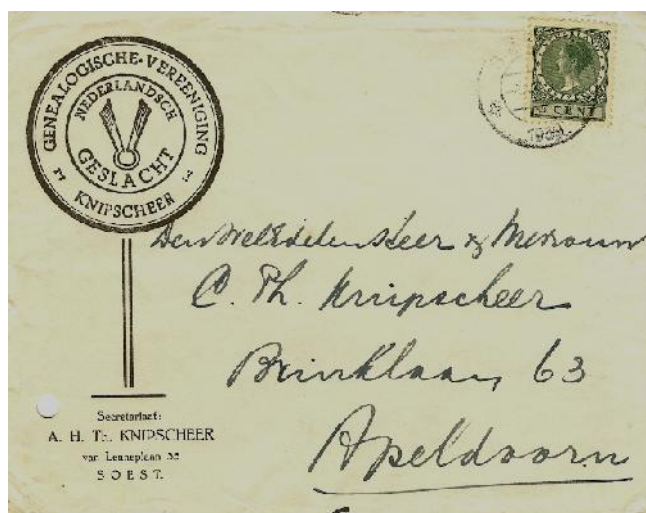 GENEALOGISCHE-VEREENIGING
KNIPSCHEER
NEDERLANDSCH
GESLACHT
CENT
Den WelEdelen Heer & Mevrouw
C. Th. Knipscheer
Brinklaan 63
Apeldoorn
Secretariaat:
A. H. Th. KNIPSCHEER
van Lenneplaan
SOEST.